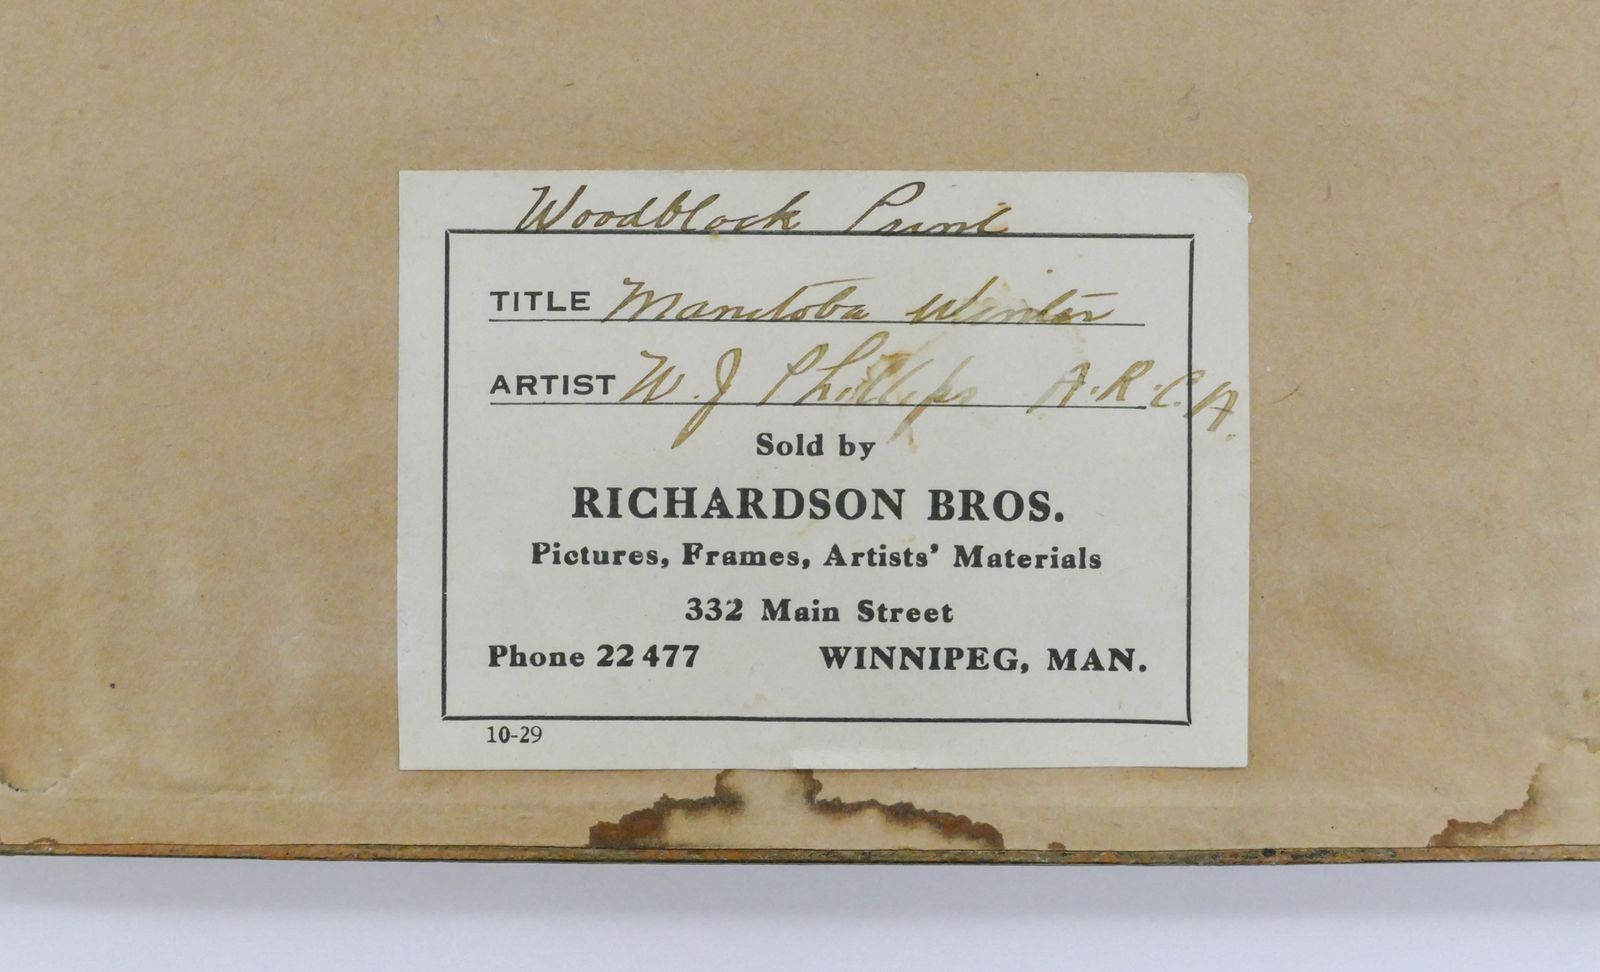 Woodblock Print
TITLE Manitoba Winter
ARTIST W. J Phillips A.R.C.A.
Sold by
RICHARDSON BROS.
Pictures, Frames, Artists' Materials
332 Main Street
Phone 22 477 WINNIPEG, MAN.
10-29